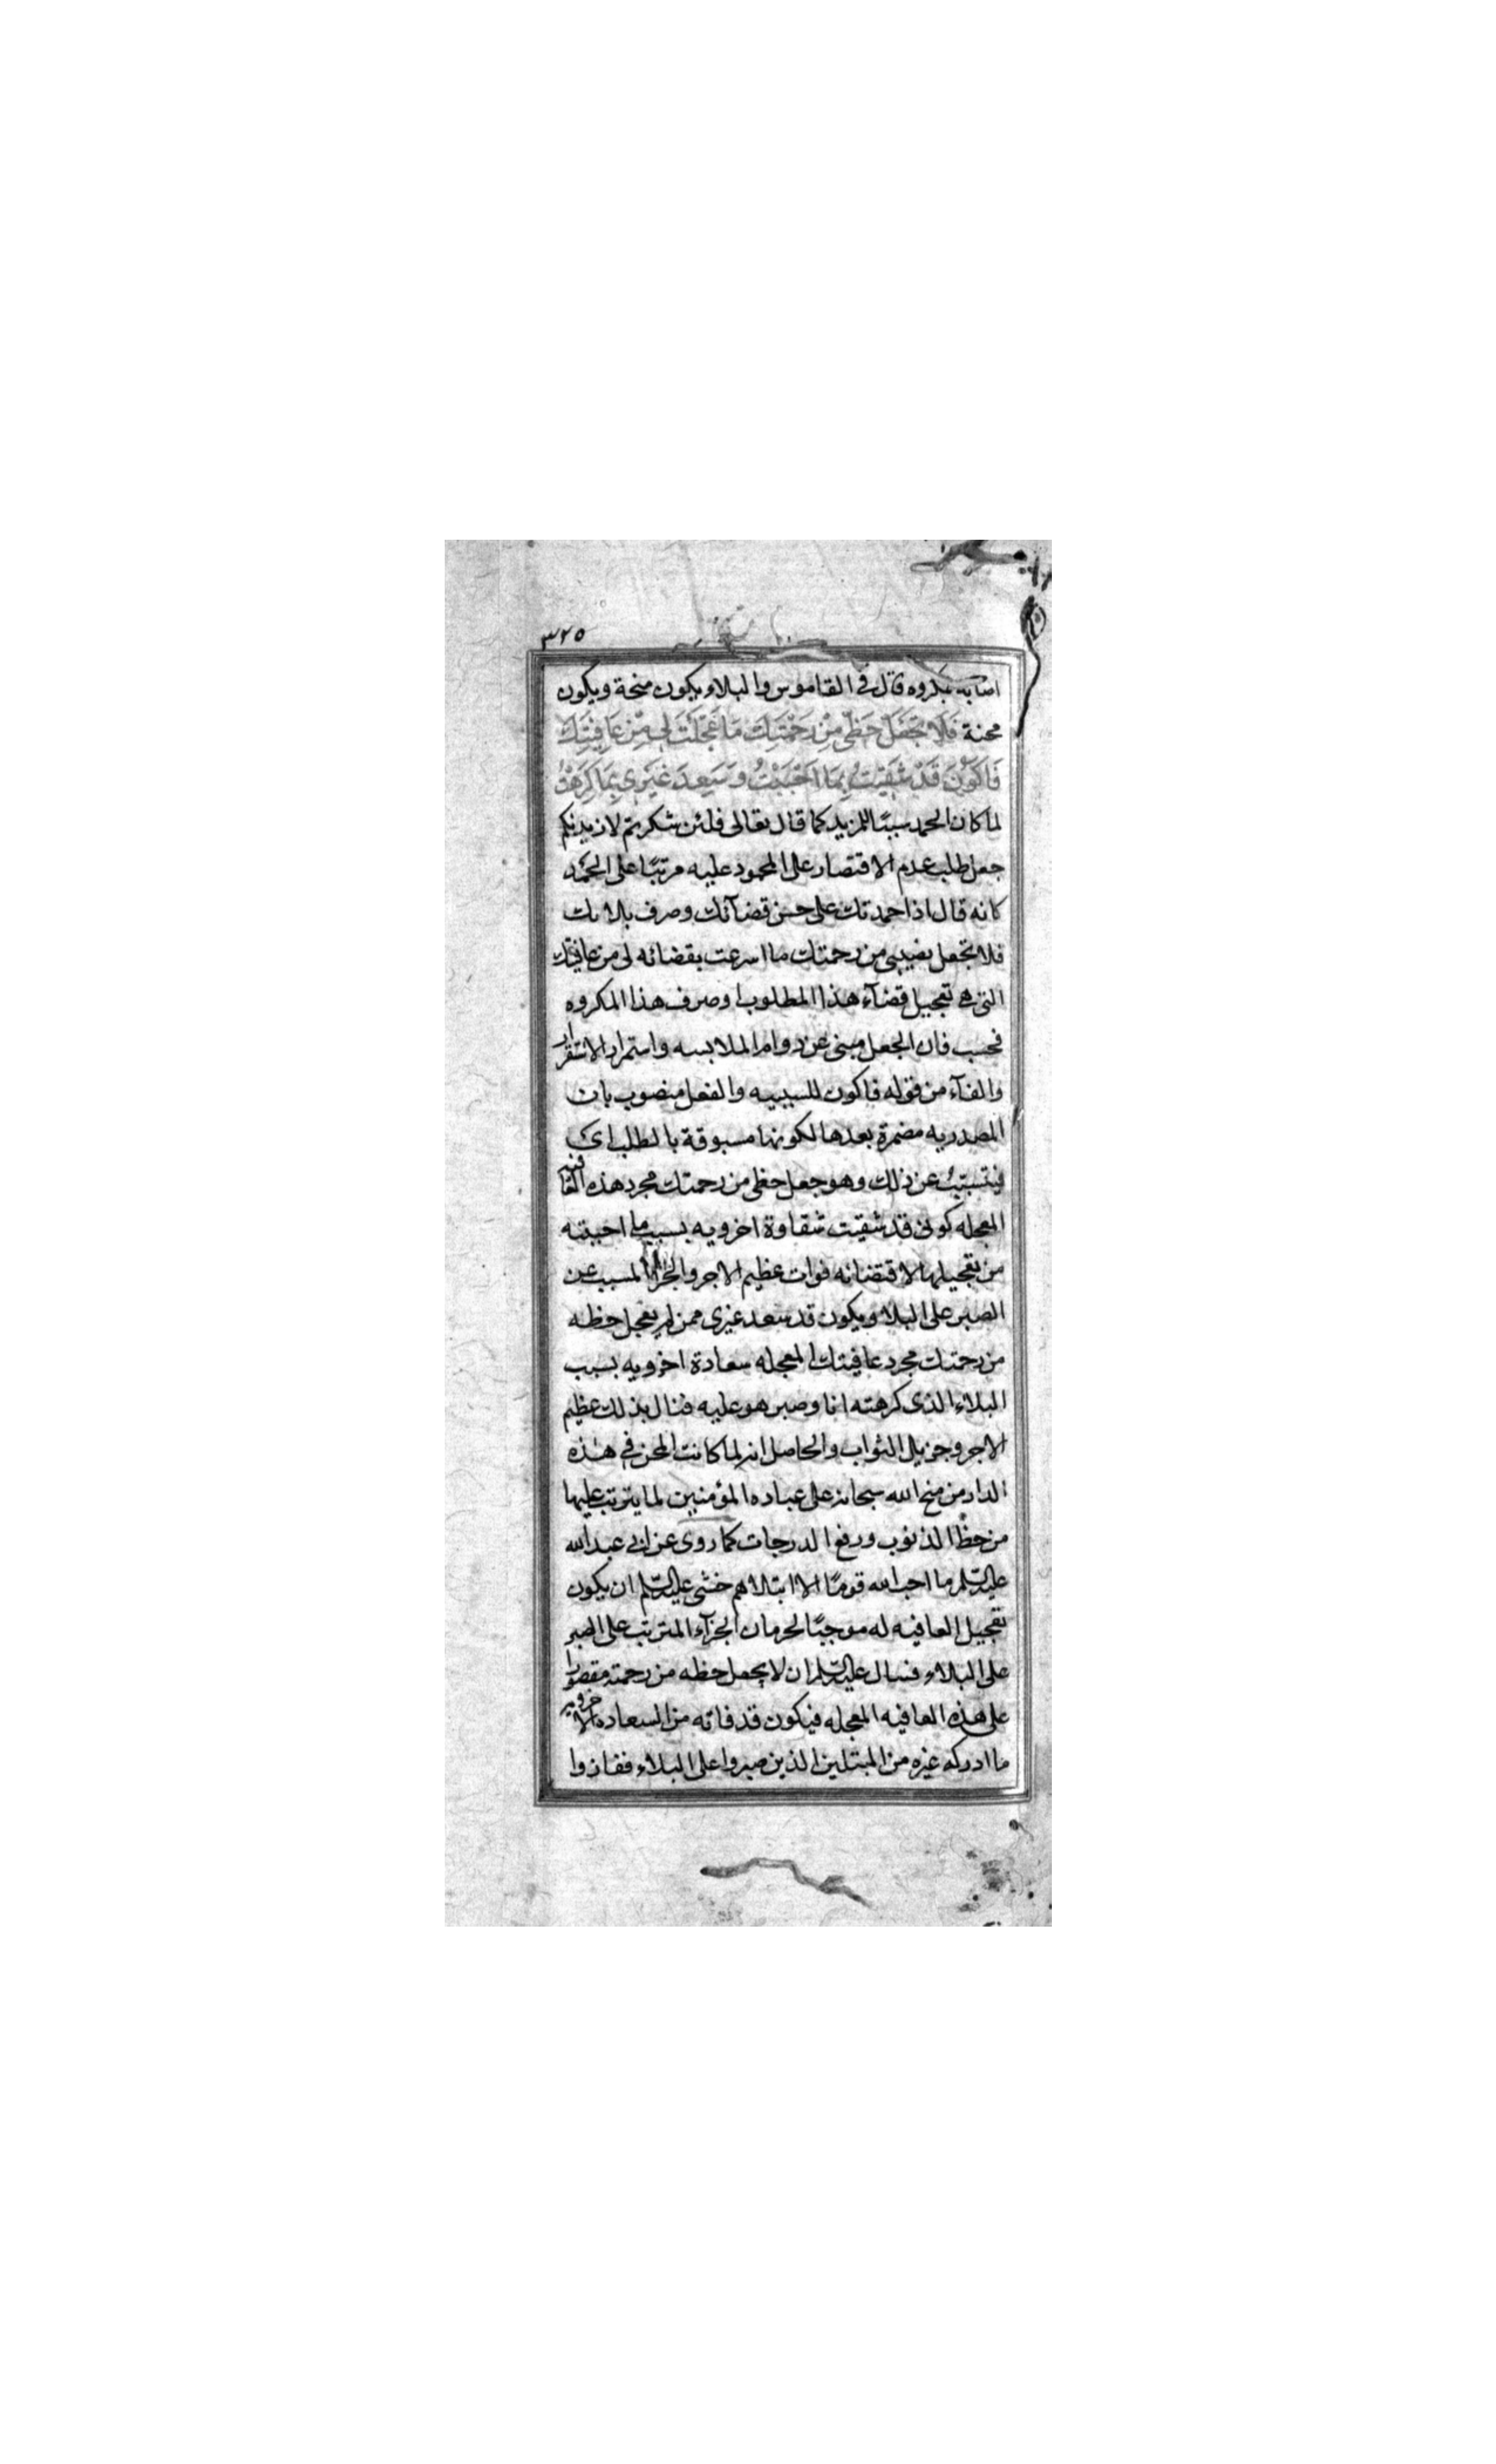 ٣٢٥
اصابه بمكروه قال في القاموس والبلاء يكون منحة ويكون
محنة فَلَا تَجْعَلْ حَظّي مِنْ رَحْمَتِكَ مَا عَجَّلْتَ لي مِنْ عَافِيَتِكَ
فَاَكُونَ قَدْ شَقِيتُ بِمَا اَحْبَبْتُ وَسَعِدَ غَيْرِي بِمَا كَرِهْتُ
لما كان الحمد سببًا للمزيد كما قال تعالى فلئن شكرتم لازيدنكم
جعل طلب عدم الاقتصار على المحمود عليه مرتبًا على الحمد
كانه قال اذا احمدتك على حسن قضآئك وصرف بلائك
فلا تجعل نصيبي من رحمتك ما اسرعت بقضائه لى من عافيتك
التى هي تعجيل قضآء هذا المطلوب او صرف هذا المكروه
فحسب فان الجعل مبنى عن دوام الملابسه واستمرار الاستقرار
والفآء من قوله فاكون للسببيه والفعل منصوب بان
المصدريه مضمرة بعدها لكونها مسبوقة بالطلب اى
فيتسبّب عن ذلك وهو جعل حظى من رحمتك مجرد هذه العافيه
المعجله كونى قد شقيت شقاوة اخرويه بسبب ما احببته
من تعجيلها لاقتضائه فوات عظيم الاجر والجزاء المسبب عن
الصبر على البلاء ويكون قد سعد غيرى ممن لم يعجل حظه
من رحمتك مجرد عافيتك المعجله سعادة اخرويه بسبب
البلاء الذى كرهته انا وصبر هو عليه فنال بذلك عظيم
الاجر وجزيل الثواب والحاصل انه لما كانت المحن في هذه
الدار من منح الله سبحانه على عباده المؤمنين لما يترتب عليها
من حط الذنوب ورفع الدرجات كما روى عن ابي عبد الله
عليه السلم ما احب الله قومًا الا ابتلاهم خشى عليه السلم ان يكون
تعجيل العافيه له موجبًا لحرمان الجزآء المترتب على الصبر
على البلاء فسال عليه السلم ان لا يجعل حظه من رحمته مقصورا
على هذه العافيه المعجله فيكون قد فاته من السعاده الاخرويه
ما ادركه غيره من المبتلين الذين صبروا على البلاء ففازوا